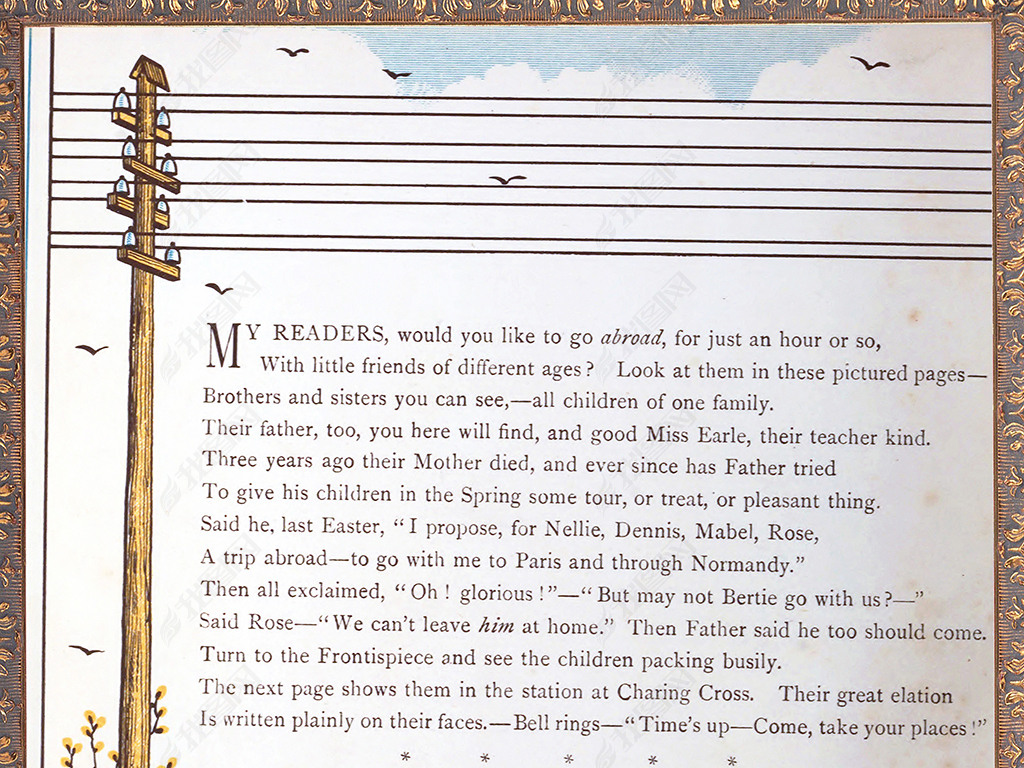 MY READERS, would you like to go abroad, for just an hour or so,
With little friends of different ages? Look at them in these pictured pages—
Brothers and sisters you can see,—all children of one family.
Their father, too, you here will find, and good Miss Earle, their teacher kind.
Three years ago their Mother died, and ever since has Father tried
To give his children in the Spring some tour, or treat, or pleasant thing.
Said he, last Easter, “I propose, for Nellie, Dennis, Mabel, Rose,
A trip abroad—to go with me to Paris and through Normandy.”
Then all exclaimed, “Oh! glorious!”—“But may not Bertie go with us?—”
Said Rose—“We can't leave him at home.” Then Father said he too should come.
Turn to the Frontispiece and see the children packing busily.
The next page shows them in the station at Charing Cross. Their great elation
Is written plainly on their faces.—Bell rings—“Time's up—Come, take your places!”
* * * * *